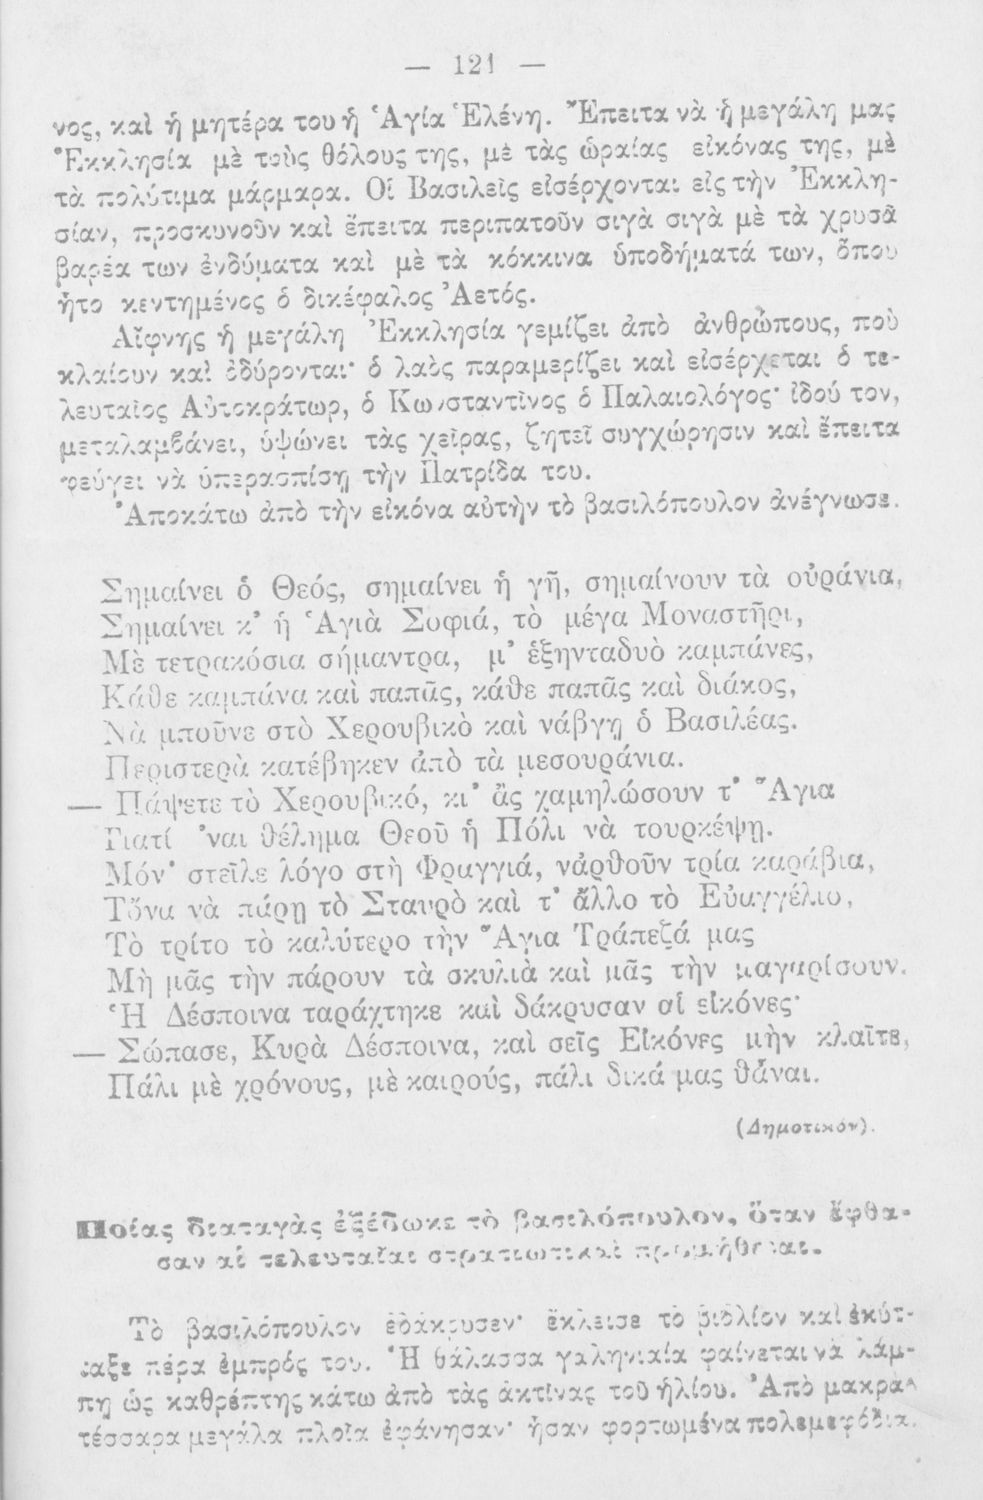 — 121 —
νος, καὶ ἡ μητέρα του ἡ Ἁγία Ἑλένη. Ἔπειτα νὰ ἡ μεγάλη μας
Ἐκκλησία μὲ τοὺς θόλους της, μὲ τὰς ὡραίας εἰκόνας της, μὲ
τὰ πολύτιμα μάρμαρα. Οἱ Βασιλεῖς εἰσέρχονται εἰς τὴν Ἐκκλη-
σίαν, προσκυνοῦν καὶ ἔπειτα περιπατοῦν σιγὰ σιγὰ μὲ τὰ χρυσᾶ
βαρέα των ἐνδύματα καὶ μὲ τὰ κόκκινα ὑποδήματά των, ὅπου
ἦτο κεντημένος ὁ δικέφαλος Ἀετός.
Αἴφνης ἡ μεγάλη Ἐκκλησία γεμίζει ἀπὸ ἀνθρώπους, ποὺ
κλαίουν καὶ ὀδύρονται· ὁ λαὸς παραμερίζει καὶ εἰσέρχεται ὁ τε-
λευταῖος Αὐτοκράτωρ, ὁ Κωνσταντῖνος ὁ Παλαιολόγος· ἰδού τον,
μεταλαμβάνει, ὑψώνει τὰς χεῖρας, ζητεῖ συγχώρησιν καὶ ἔπειτα
φεύγει νὰ ὑπερασπίσῃ τὴν Πατρίδα του.
Ἀποκάτω ἀπὸ τὴν εἰκόνα αὐτὴν τὸ βασιλόπουλον ἀνέγνωσε.
Σημαίνει ὁ Θεός, σημαίνει ἡ γῆ, σημαίνουν τὰ οὐράνια,
Σημαίνει κ' ἡ Ἁγιὰ Σοφιά, τὸ μέγα Μοναστῆρι,
Μὲ τετρακόσια σήμαντρα, μ' ἑξηνταδυὸ καμπάνες,
Κάθε καμπάνα καὶ παπᾶς, κάθε παπᾶς καὶ διάκος,
Νὰ μποῦνε στὸ Χερουβικὸ καὶ νάβγῃ ὁ Βασιλέας.
Περιστερὰ κατέβηκεν ἀπὸ τὰ μεσουράνια.
— Πάψετε τὸ Χερουβικό, κι' ἂς χαμηλώσουν τ' Ἅγια
Γιατί 'ναι θέλημα Θεοῦ ἡ Πόλι νὰ τουρκέψῃ.
Μόν' στεῖλε λόγο στὴ Φραγγιά, νἀρθοῦν τρία καράβια,
Τὄνα νὰ πάρῃ τὸ Σταυρὸ καὶ τ' ἄλλο τὸ Εὐαγγέλιο,
Τὸ τρίτο τὸ καλύτερο τὴν Ἅγια Τράπεζά μας
Μὴ μᾶς τὴν πάρουν τὰ σκυλιὰ καὶ μᾶς τὴν μαγαρίσουν.
Ἡ Δέσποινα ταράχτηκε καὶ δάκρυσαν οἱ εἰκόνες·
— Σώπασε, Κυρὰ Δέσποινα, καὶ σεῖς Εἰκόνες μὴν κλαῖτε,
Πάλι μὲ χρόνους, μὲ καιρούς, πάλι δικά μας θἆναι.
(Δημοτικόν).
Ποίας διαταγὰς ἐξέδωκε τὸ βασιλόπουλον, ὅταν ἔφθα-
σαν αἱ τελευταῖαι στρατιωτικαὶ προμήθειαι.
Τὸ βασιλόπουλον ἐδάκρυσεν· ἔκλεισε τὸ βιβλίον καὶ ἐκύτ-
ταξε πέρα ἐμπρός του. Ἡ θάλασσα γαληνιαία φαίνεται νὰ λάμ-
πῃ ὡς καθρέπτης κάτω ἀπὸ τὰς ἀκτῖνας τοῦ ἡλίου. Ἀπὸ μακρὰ
τέσσαρα μεγάλα πλοῖα ἐφάνησαν· ἦσαν φορτωμένα πολεμεφόδια.